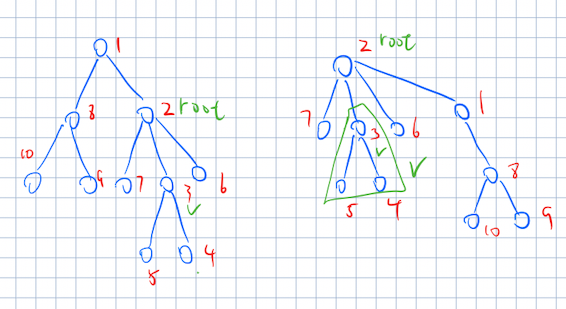 1
8
2 root
10
9
7
3
6
5
4
2 root
7
3
6
1
5
4
8
10
9